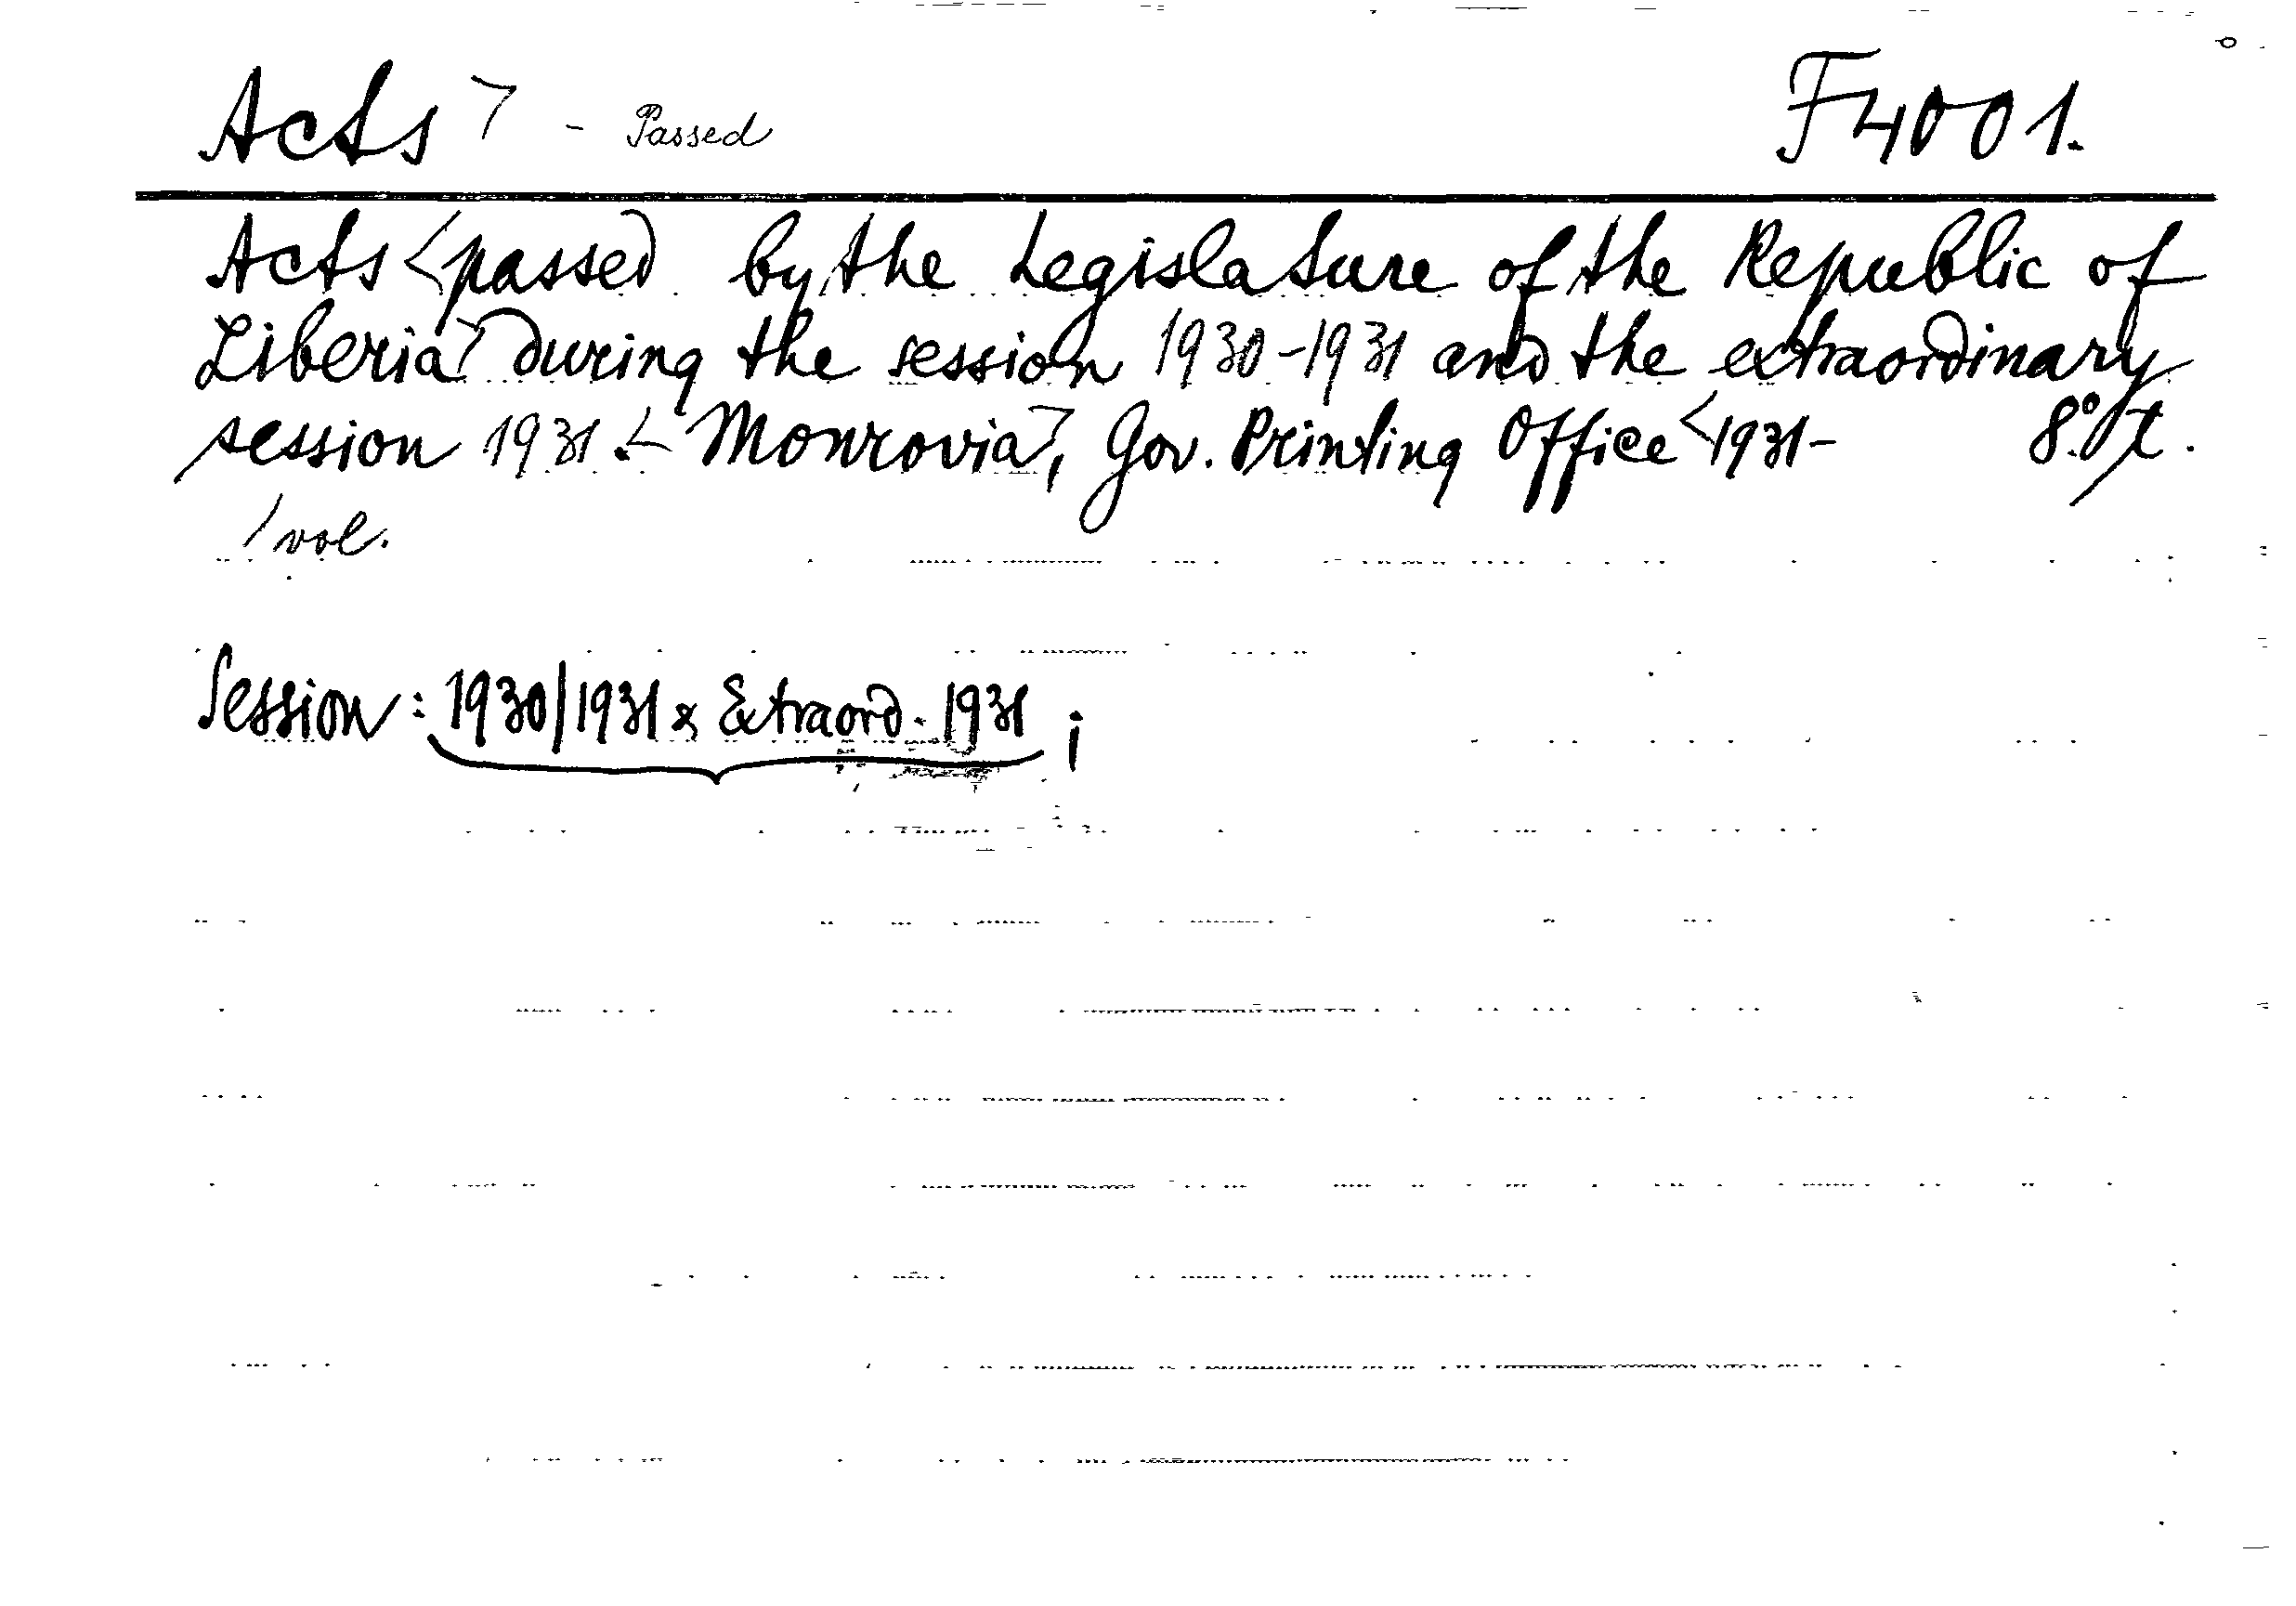 Acts> - Passed F4001.
Acts <passed by the Legislature of the Republic of
Liberia> during the session 1930-1931 and the extraordinary
session 1931. <Monrovia>, Gov. Printing Office <1931- 8° t.
1 vol.
Session: 1930/1931 & Extraord. 1931 ;